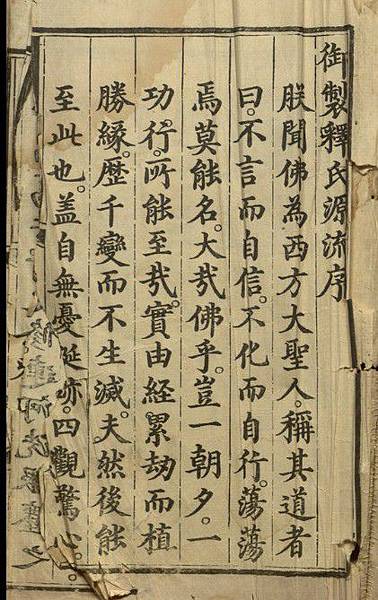 御製釋氏源流序
朕聞佛為西方大聖人。稱其道者
曰。不言而自信。不化而自行。蕩蕩
焉莫能名。大哉佛乎。豈一朝夕。一
功。行。所能至哉。實由經累劫而植
勝緣。歷千變而不生滅。夫然後能
至此也。蓋自無憂誕跡。四觀驚心。
修連河洗塵之